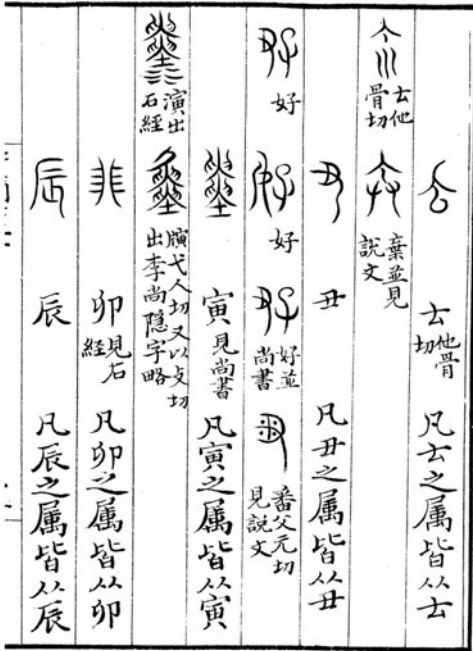 𠫓他骨切 凡𠫓之属皆从𠫓
𠫓他骨切 棄並見說文
丑 凡丑之属皆从丑
好 好 好並尚書 番父元切見說文
寅見尚書 凡寅之属皆从寅
演出石經 弋人切又以支切出李尚隱字略
卯見石經 凡卯之属皆从卯
辰 凡辰之属皆从辰